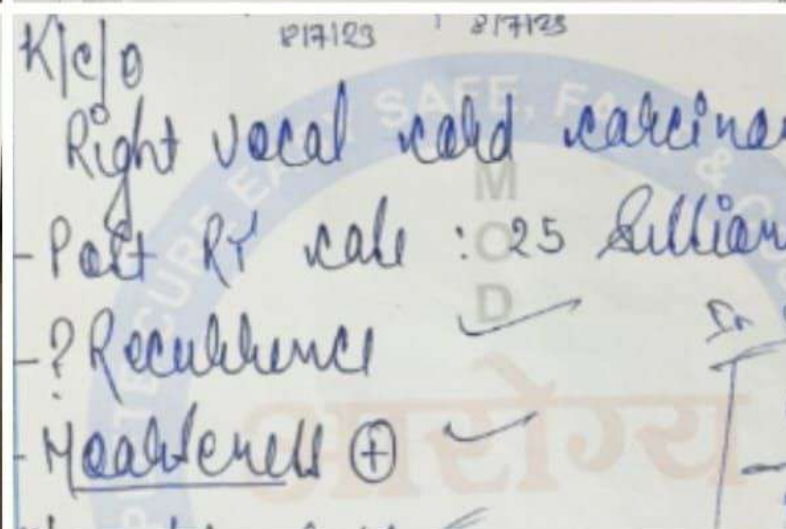 8/7/23 8/7/23
K/c/o
Right vocal cord carcinoma
- Post RT case : 25
- ? Recurrence
- Hoarseness ⊕
SAFE, FA
SECURE
MOD
आरोग्य